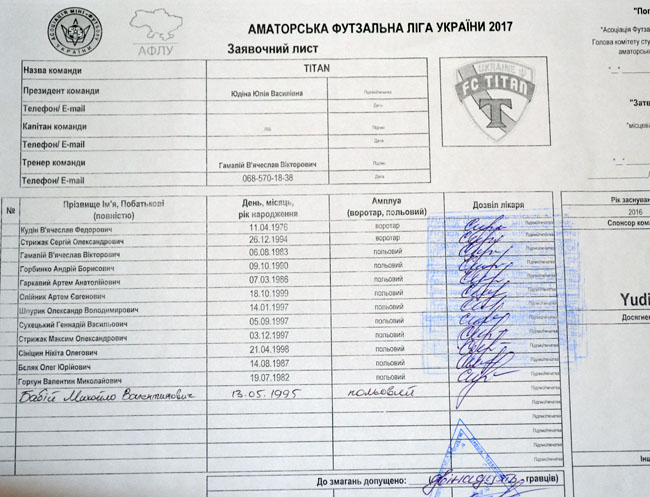 АСОЦІАЦІЯ МІНІ-ФУТБОЛУ УКРАЇНИ
АФЛУ
АМАТОРСЬКА ФУТЗАЛЬНА ЛІГА УКРАЇНИ 2017
Заявочний лист
"Асоціація Футза
Голова комітету сту
аматорськ
Назва команди TITAN
UKRAINE
FC TITAN
T
Президент команди Юдіна Юлія Василівна
Телефон/ E-mail Дата
Капітан команди Підпис
Телефон/ E-mail Дата
Тренер команди Гамалій В'ячеслав Вікторович Підпис
Телефон/ E-mail 068-570-18-38 Дата
"Затв
"місцева
№ Прізвище Ім'я, Побатькові (повністю) День, місяць, рік народження Амплуа (воротар, польовий) Дозвіл лікаря
Кудін В'ячеслав Федорович 11.04.1976 воротар
Стрижак Сергій Олександрович 26.12.1994 воротар
Гамалій В'ячеслав Вікторович 06.08.1983 польовий
Горбинко Андрій Борисович 09.10.1990 польовий
Гаркавий Артем Анатолійович 07.03.1986 польовий
Олійник Артем Євгенович 18.10.1999 польовий
Шпурик Олександр Володимирович 14.01.1997 польовий
Сухецький Геннадій Васильович 05.09.1997 польовий
Стрижак Максим Олександрович 03.12.1997 польовий
Сініцин Нікіта Олегович 21.04.1998 польовий
Бєляк Олег Юрійович 14.08.1987 польовий
Горгун Валентин Миколайович 19.07.1982 польовий
Бабій Михайло Валентинович 13.05.1995 польовий
Рік заснуван
2016
Спонсор кома
Yudi
Досягнен
Інш
До змагань допущено: дванадцять гравців)